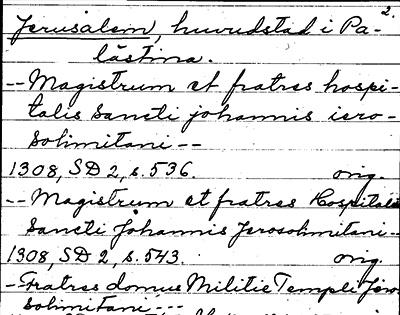 2.
Jerusalem, huvudstad i Pa-
lästina.
-- Magistrum et fratres hospi-
talis sancti johannis iero-
solimitani --
1308, SD 2, s. 536. orig.
-- Magistrum et fratres Hospitalis
sancti Johannis Jerosolimitani --
1308, SD 2, s. 543. orig.
- Fratres domus Militie Templi Jero
solimitani ---